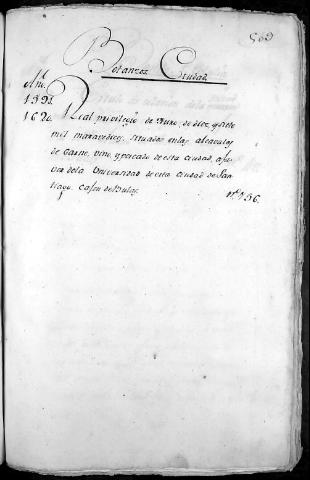 569
Betanzos Ciudad.
Años
1592. Real privilegio de Juro, de diez, y siete
1620. mil maravedises, situados en las alcavalas
de Carne, vino, y pescado de esta Ciudad, a fa-
vor de la Universidad de esta Ciudad de San-
tiago. Cajon de Bulas. nº 156.